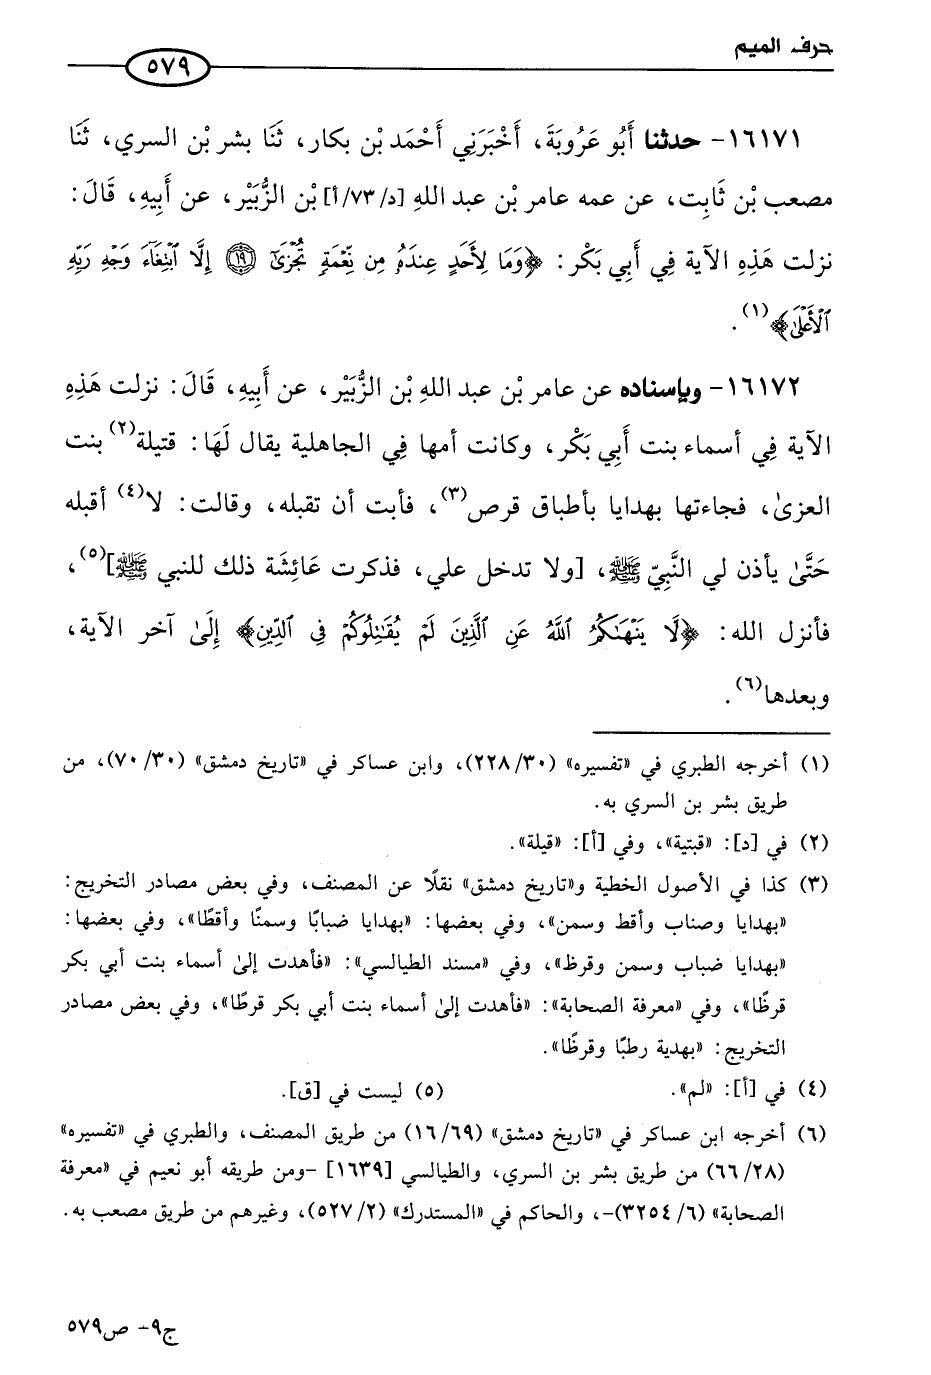 حرف الميم
٥٧٩
١٦١٧١- حدثنا أَبُو عَرُوبَةَ، أَخْبَرَنِي أَحْمَد بْن بكار، ثَنَا بشر بْن السري، ثَنَا
مصعب بْن ثَابِت، عن عمه عامر بْن عبد اللهِ [د/ ٧٣/ أ] بْن الزُّبَيْر، عن أَبِيهِ، قَالَ:
نزلت هَذِهِ الآية فِي أَبِي بَكْر: ﴿وَمَا لِأَحَدٍ عِندَهُۥ مِن نِّعْمَةٍ تُجْزَىٰٓ ۝١٩ إِلَّا ٱبْتِغَآءَ وَجْهِ رَبِّهِ
ٱلْأَعْلَىٰ﴾(١).
١٦١٧٢- وبإسناده عن عامر بْن عبد اللهِ بْن الزُّبَيْر، عن أَبِيهِ، قَالَ: نزلت هَذِهِ
الآية فِي أسماء بنت أَبِي بَكْر، وكانت أمها فِي الجاهلية يقال لَهَا: قتيلة(٢) بنت
العزىٰ، فجاءتها بهدايا بأطباق قرص(٣)، فأبت أن تقبله، وقالت: لا(٤) أقبله
حَتَّىٰ يأذن لي النَّبِيّ ﷺ، [ولا تدخل علي، فذكرت عَائِشَة ذلك للنبي ﷺ](٥)،
فأنزل الله: ﴿لَّا يَنْهَىٰكُمُ ٱللَّهُ عَنِ ٱلَّذِينَ لَمْ يُقَٰتِلُوكُمْ فِى ٱلدِّينِ﴾ إِلَىٰ آخر الآية،
وبعدها(٦).
(١) أخرجه الطبري في «تفسيره» (٣٠/ ٢٢٨)، وابن عساكر في «تاريخ دمشق» (٣٠/ ٧٠)، من
طريق بشر بن السري به.
(٢) في [د]: «قبتية»، وفي [أ]: «قيلة».
(٣) كذا في الأصول الخطية و«تاريخ دمشق» نقلًا عن المصنف، وفي بعض مصادر التخريج:
«بهدايا وصناب وأقط وسمن»، وفي بعضها: «بهدايا ضبابًا وسمنًا وأقطًا»، وفي بعضها:
«بهدايا ضباب وسمن وقرظ»، وفي «مسند الطيالسي»: «فأهدت إلىٰ أسماء بنت أبي بكر
قرظًا»، وفي «معرفة الصحابة»: «فأهدت إلىٰ أسماء بنت أبي بكر قرطًا»، وفي بعض مصادر
التخريج: «بهدية رطبًا وقرظًا».
(٤) في [أ]: «لم». (٥) ليست في [ق].
(٦) أخرجه ابن عساكر في «تاريخ دمشق» (٦٩/ ١٦) من طريق المصنف، والطبري في «تفسيره»
(٢٨/ ٦٦) من طريق بشر بن السري، والطيالسي [١٦٣٩] -ومن طريقه أبو نعيم في «معرفة
الصحابة» (٦/ ٣٢٥٤)-، والحاكم في «المستدرك» (٢/ ٥٢٧)، وغيرهم من طريق مصعب به.
ج٩- ص٥٧٩